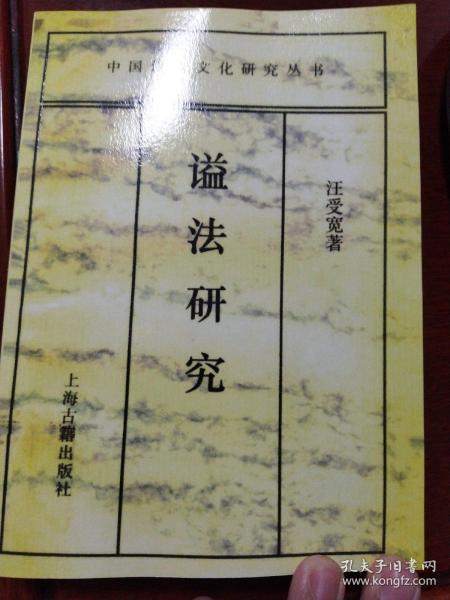 中国 文化研究丛书
谥法研究
汪受宽著
上海古籍出版社
孔夫子旧书网
www.kongfz.com